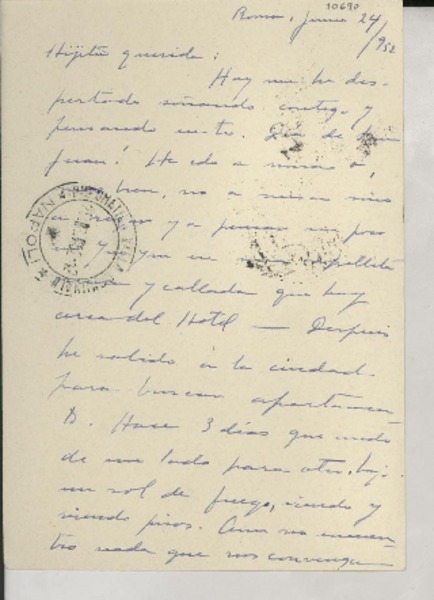 10690
Roma, junio 24
/952
Hijita querida:
Hoy me he des-
pertado soñando contigo y
pensando en ti. Día de San
Juan! He ido a misa a,
bien, no a misa sino
a rezar y a pensar un poco
en
y callada que hay
cerca del Hotel — Después
he salido á la ciudad
para buscar apartamen-
to. Hace 3 días que ando
de un lado para otro, bajo
un sol de fuego, viendo y
viendo pisos. Aun no encuen-
tro nada que nos convenga
NAPOLI